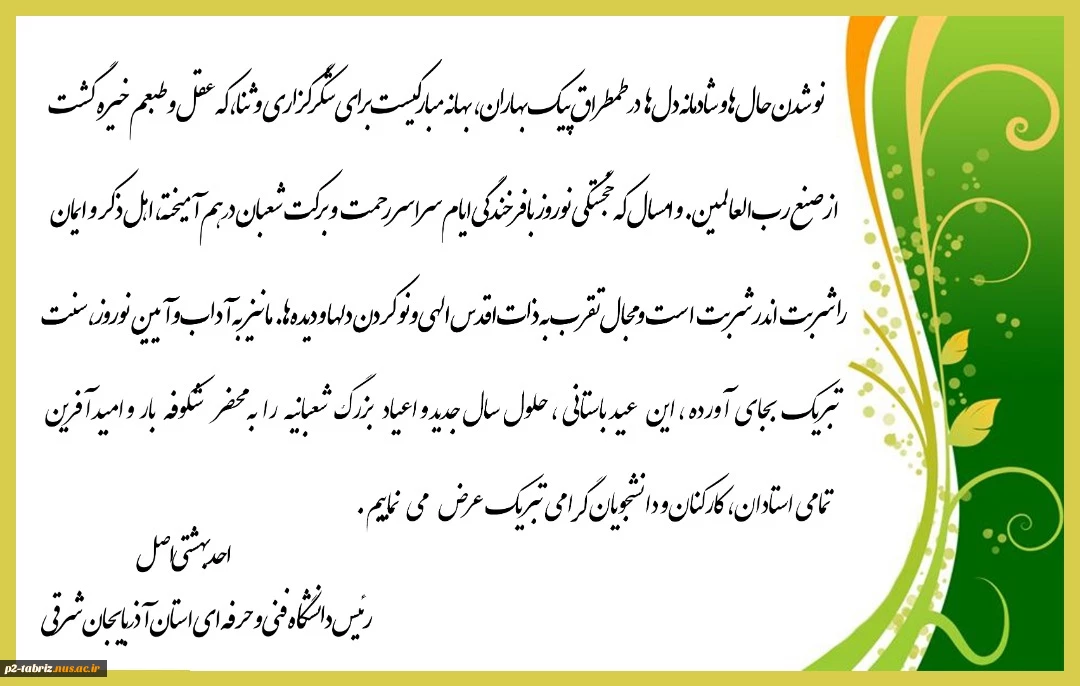 نو شدن حال ها و شادمانه دل ها در طمطراق پیک بهاران، بهانه مبارکیست برای شکرگزاری و ثنا، که عقل و طبعم خیره گشت
از صنع رب العالمین. و امسال که خجستگی نوروز با فرخندگی ایام سراسر رحمت و برکت شعبان در هم آمیخته، اهل ذکر و ایمان
را شربت اندر شربت است و مجال تقرب به ذات اقدس الهی و نو کردن دلها و دیده ها. ما نیز به آداب و آیین نوروز، سنت
تبریک بجای آورده ، این عید باستانی ، حلول سال جدید و اعیاد بزرگ شعبانیه را به محضر شکوفه بار و امید آفرین
تمامی استادان، کارکنان و دانشجویان گرامی تبریک عرض می نماییم .
احد بهشتی اصل
رئیس دانشگاه فنی و حرفه ای استان آذربایجان شرقی
p2-tabriz.nus.ac.ir